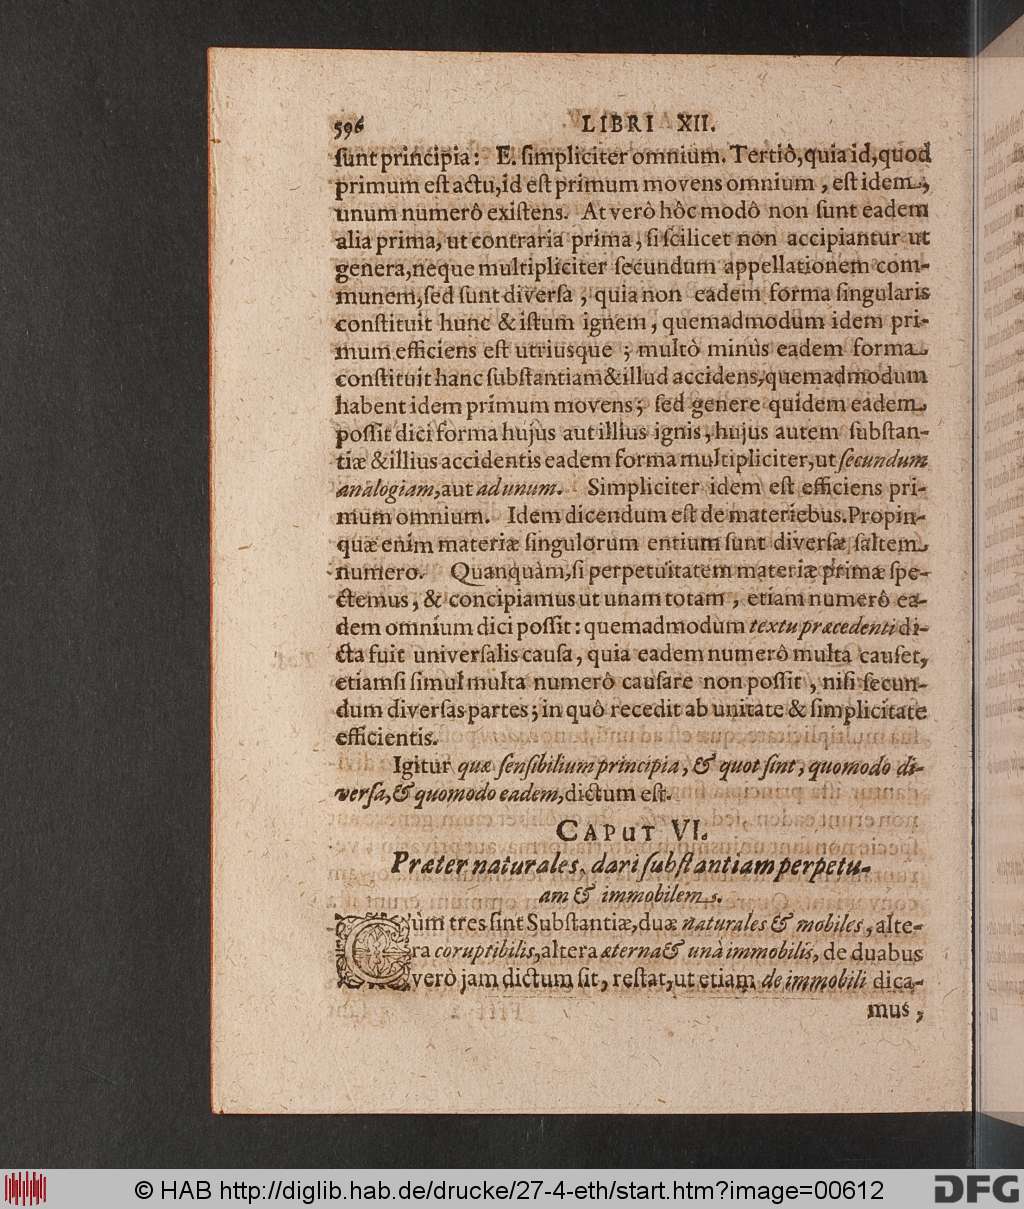 596 LIBRI XII.
ſunt principia: E. ſimpliciter omnium. Tertiò, quia id, quod
primum eſt actu, id eſt primum movens omnium, eſt idem,
unum numerô exiſtens. At verò hôc modô non ſunt eadem
alia prima, ut contraria prima, ſi ſcilicet non accipiantur ut
genera, neque multipliciter ſecundum appellationem com-
munem, ſed ſunt diverſa, quia non eadem forma ſingularis
conſtituit hunc & iſtum ignem, quemadmodum idem pri-
mum efficiens eſt utriusque; multò minùs eadem forma
conſtituit hanc ſubſtantiam & illud accidens, quemadmodum
habent idem primum movens; ſed genere quidem eadem
poſſit dici forma hujus aut illius ignis, hujus autem ſubſtan-
tiæ & illius accidentis eadem forma multipliciter, ut ſecundum
analogiam, aut ad unum. Simpliciter idem eſt efficiens pri-
mum omnium. Idem dicendum eſt de materiebus. Propin-
quæ enim materiæ ſingulorum entium ſunt diverſæ ſaltem
numero. Quanquàm, ſi perpetuitatem materiæ primæ ſpe-
ctemus, & concipiamus ut unam totam, etiam numerô ea-
dem omnium dici poſſit: quemadmodùm textu præcedenti di-
cta fuit univerſalis cauſa, quia eadem numerô multa cauſet,
etiamſi ſimul multa numerô cauſare non poſſit, niſi ſecun-
dum diverſas partes; in quô recedit ab unitate & ſimplicitate
efficientis.
Igitur quæ ſenſibilium principia, & quot ſint, quomodo di-
verſa, & quomodo eadem, dictum eſt.
CAPUT VI.
Præter naturales, dari ſubſtantiam perpetu-
am & immobilem.
Cùm tres ſint Subſtantiæ, duæ naturales & mobiles, alte-
ra coruptibilis, altera æterna & unà immobilis, de duabus
verò jam dictum ſit, reſtat, ut etiam de immobili dica-
mus,
© HAB http://diglib.hab.de/drucke/27-4-eth/start.htm?image=00612
DFG